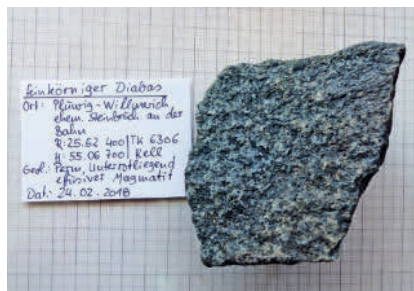 feinkörniger Diabas
Ort: Pluwig-Willmerich
ehem. Steinbruch an der
Bahn
R: 25.52 400 | TK 6306
H: 55.06 700 | Kell
Geol.: Perm, Unterrotliegend
efusiver Magmatit
Dat.: 24.02.2018